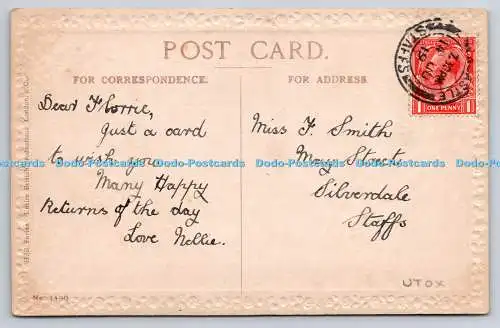 POST CARD.
FOR CORRESPONDENCE.
FOR ADDRESS.
Dear Florrie,
Just a card
to wish you
Many Happy
Returns of the day
Love Nellie.
Miss F. Smith
May Street
Silverdale
Staffs
UTOX
STAFFS
1 ONE PENNY 1
Do-Postcards Do-Postcards Do-Postcards Do-Postcards Do-Postcards Do-Postcards